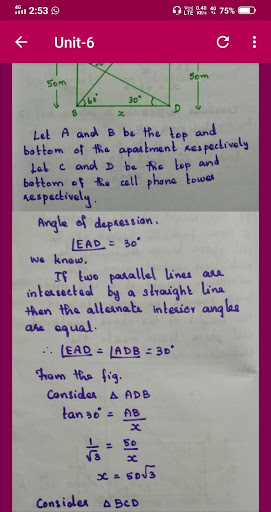 4G 2:53
VoD LTE 0.40 KB/s 4G 75%
Unit-6
50m
50m
60°
30°
B
x
D
Let A and B be the top and
bottom of the apartment respectively
Let C and D be the top and
bottom of the cell phone tower
respectively.
Angle of depression.
∠EAD = 30°
We know,
If two parallel lines are
intersected by a straight line
then the alternate interior angles
are equal.
∴ ∠EAD = ∠ADB = 30°
From the fig.
Consider △ ADB
tan 30° = AB/x
1/√3 = 50/x
x = 50√3
Consider △ BCD